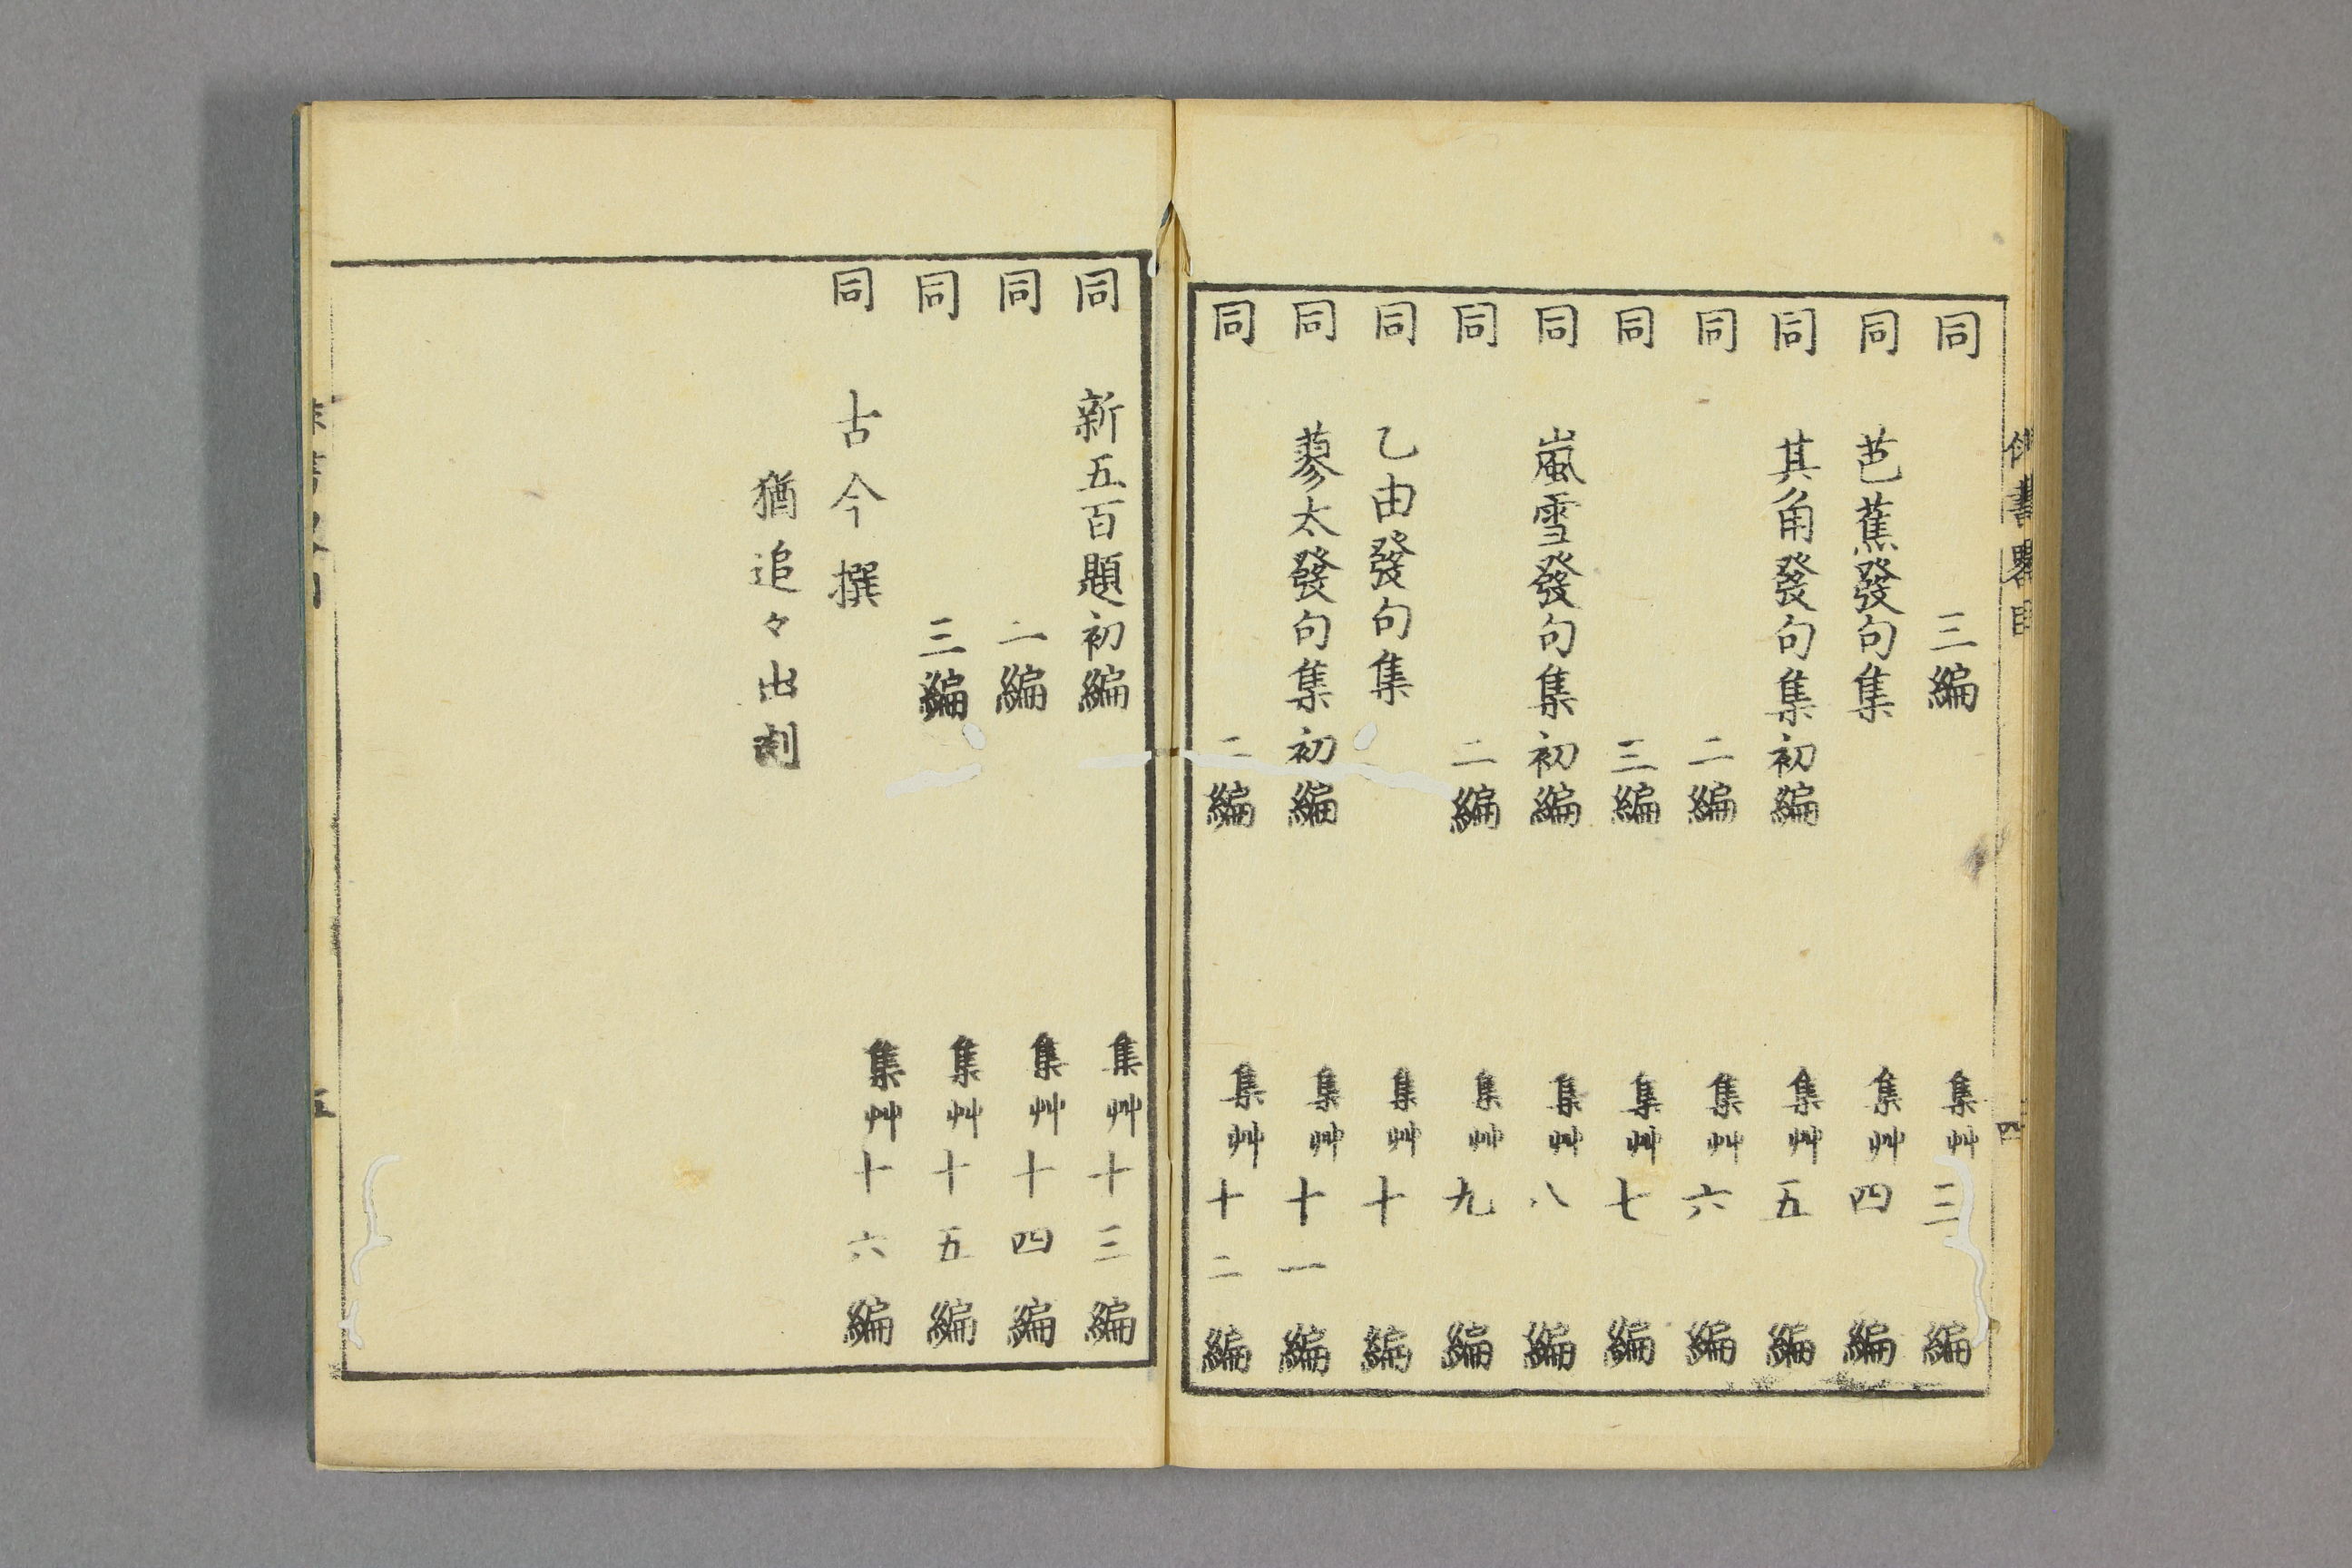 同 三編 集艸三編
同 芭蕉發句集 集艸四編
同 其角發句集初編 集艸五編
同 二編 集艸六編
同 三編 集艸七編
同 嵐雪發句集初編 集艸八編
同 二編 集艸九編
同 乙由發句集 集艸十編
同 蓼太發句集初編 集艸十一編
同 二編 集艸十二編
同 新五百題初編 集艸十三編
同 二編 集艸十四編
同 三編 集艸十五編
同 古今撰 集艸十六編
猶追々出刻